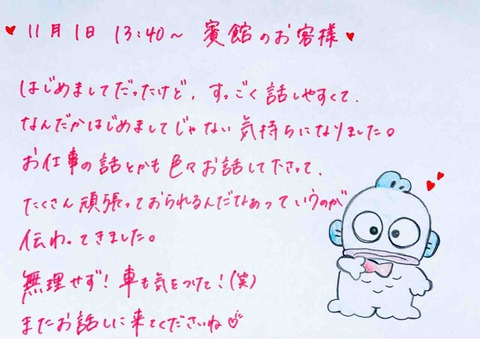 ♥ 11月1日 13:40〜 賓館のお客様♥
はじめましてだったけど、すっごく話しやすくて、
なんだかはじめましてじゃない気持ちになりました。
お仕事の話とかも色々お話して下さって、
たくさん頑張っておられるんだなあっていうのが
伝わってきました。
無理せず！車も気をつけて！(笑)
またお話しに来てくださいね♡